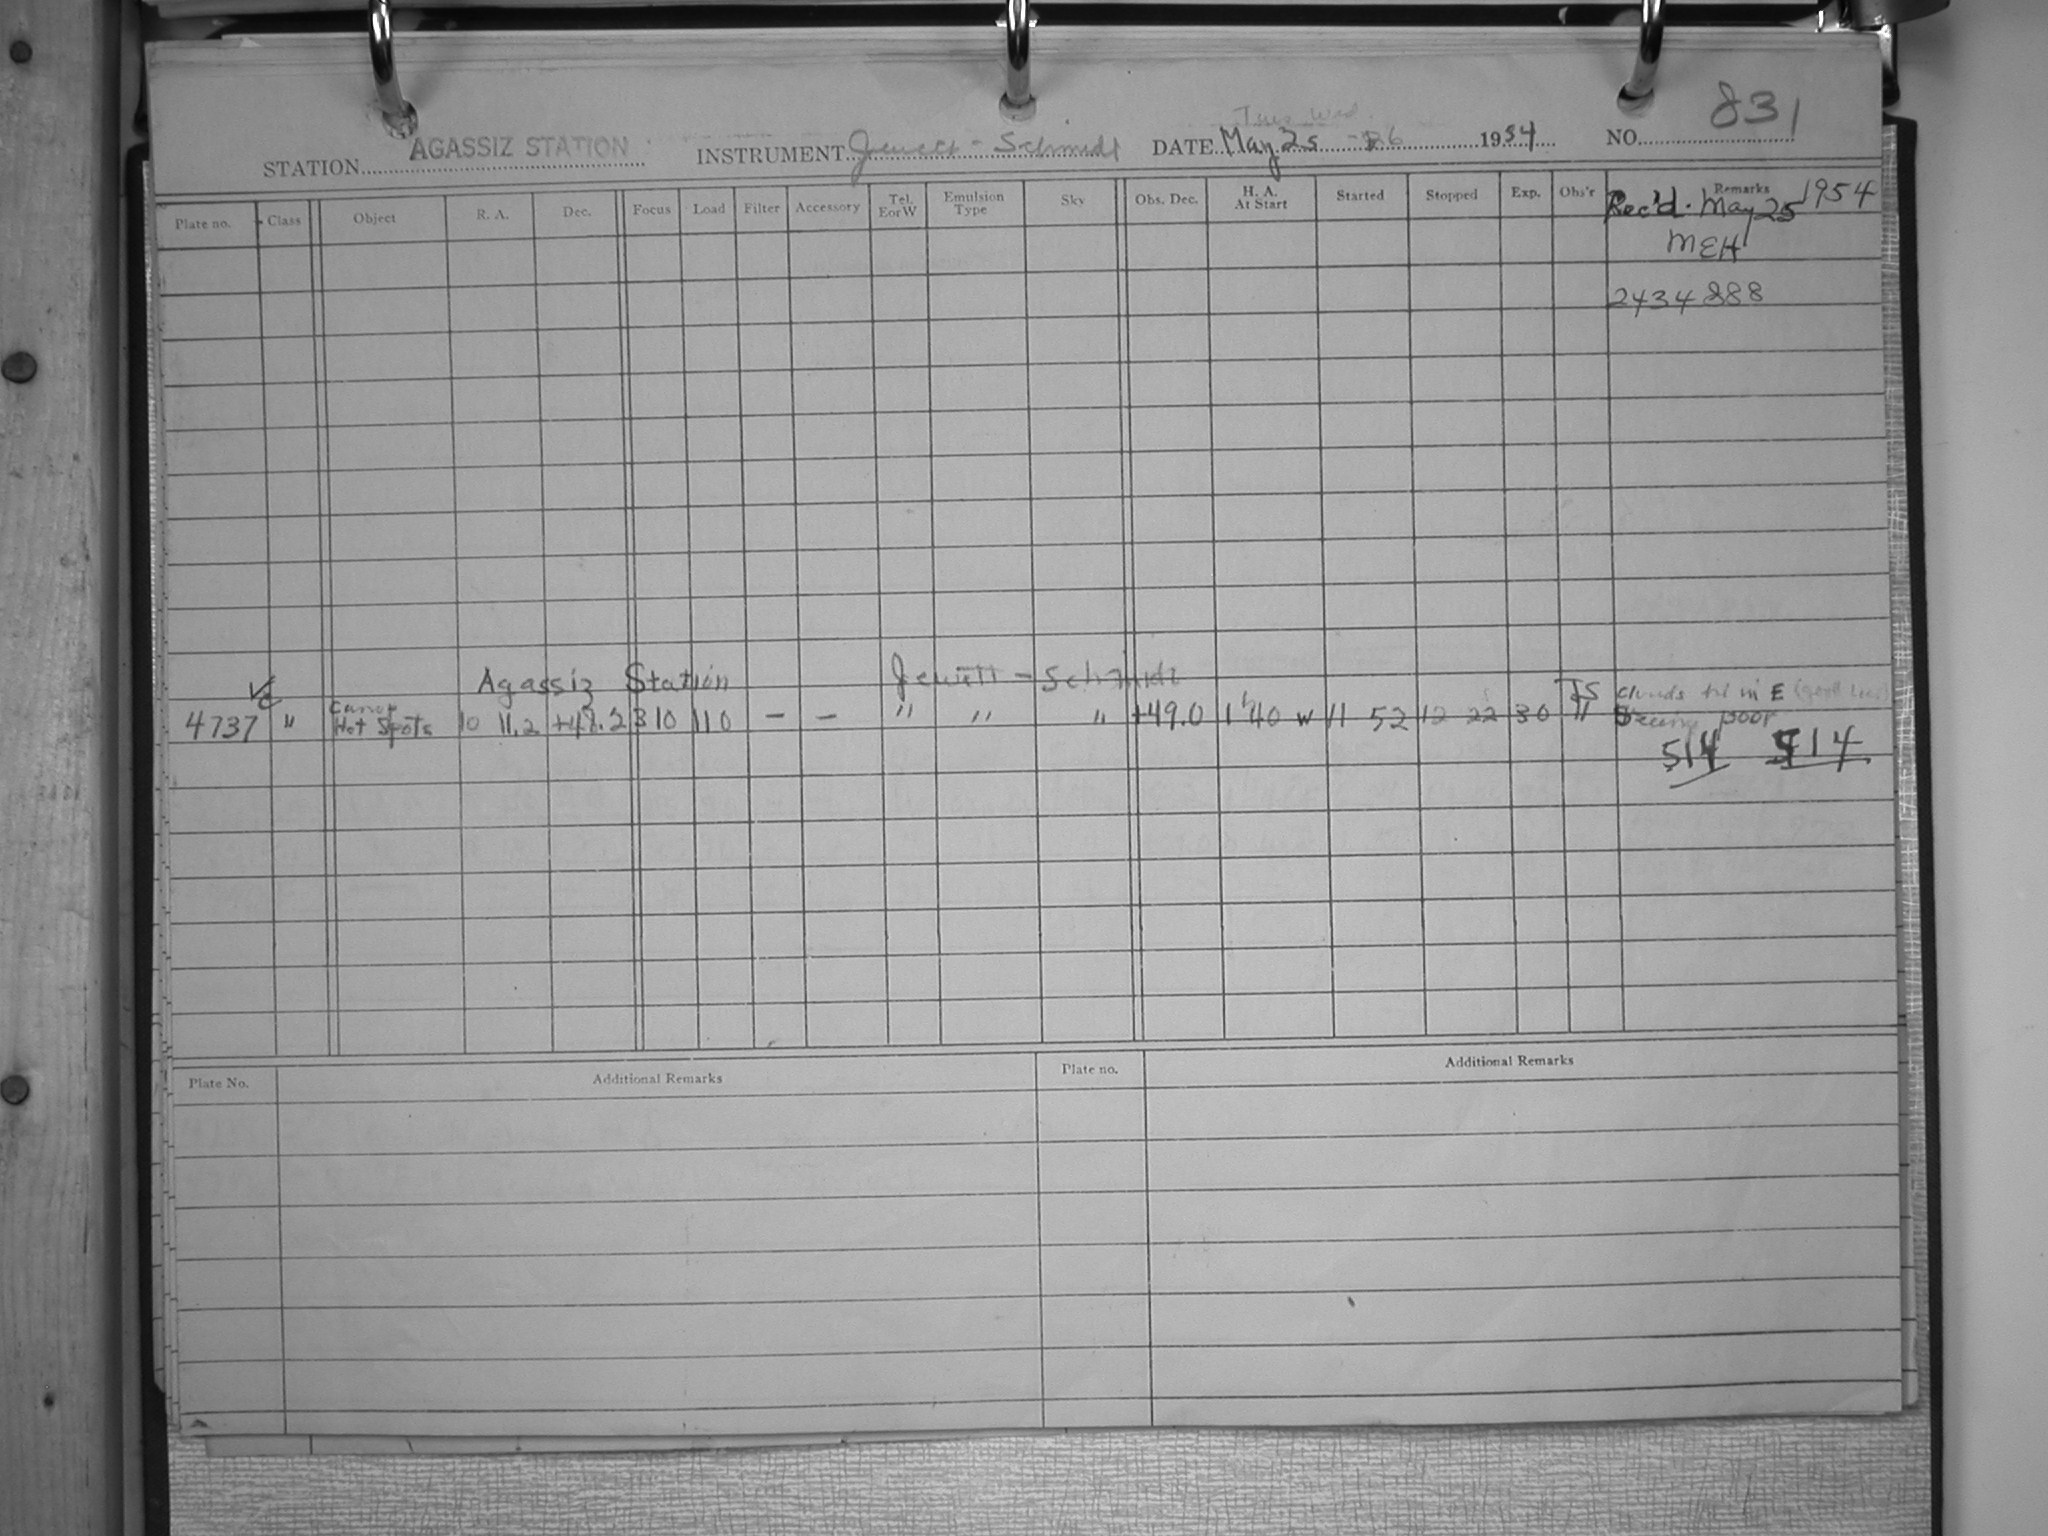 Tues Wed.
STATION AGASSIZ STATION INSTRUMENT Jewett - Schmidt DATE May 25 - 26 1954 NO. 831
Plate no. Class Object R. A. Dec. Focus Load Filter Accessory Tel. E or W Emulsion Type Sky Obs. Dec. H. A. At Start Started Stopped Exp. Obs'r Remarks
Rec'd. May 25 1954
MEH
2434888
Agassiz Station Jewett - Schmidt
TS clouds in E
4737 " Hot Spots 10 11.2 +48.2 310 110 - - " " " +49.0 1h 40 W 11 52 12 22 30 " Seeing poor
514 514
Plate No. Additional Remarks Plate no. Additional Remarks